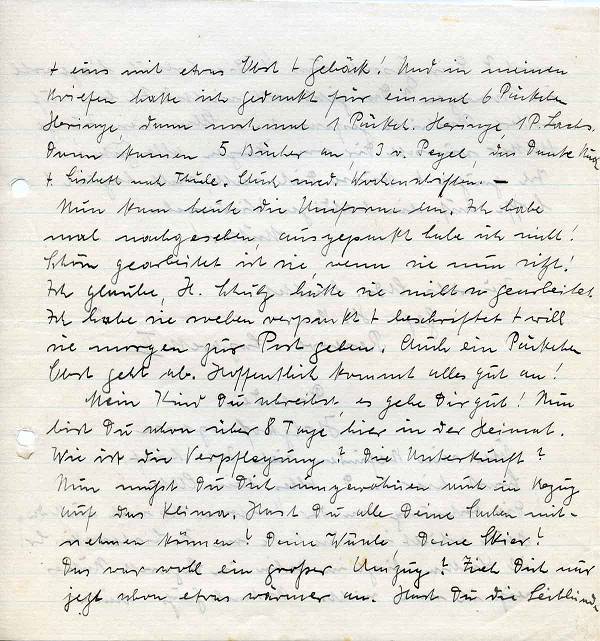 + eins mit etwas Obst + Gebäck! Und in meinen
Briefen hatte ich gedankt für einmal 6 Päckchen
Heringe, dann nochmal 1 Päckch. Heringe, 1 P. Lachs.
Dann kamen 5 Bücher an, 3 v. Pegel, das Dante
+ Lisbeth und Thule. Auch med. Wochenschriften. —
Nun kam heute die Uniform an. Ich habe
mal nachgesehen, ausgepackt habe ich nicht!
Schön gearbeitet ist sie, wenn sie nun sitzt!
Ich glaube, H. Schulz hätte sie nicht so gearbeitet.
Ich habe sie soeben verpackt + beschriftet + will
sie morgen zur Post geben. Auch ein Päckchen
Obst geht ab. Hoffentlich kommt alles gut an!
Mein Kind Du schreibst, es gehe Dir gut! Nun
bist Du schon über 8 Tage hier in der Heimat.
Wie ist die Verpflegung? Die Unterkunft?
Nun mußt Du Dich umgewöhnen auch in Bezug
auf das Klima. Hast Du alle Deine Sachen mit-
nehmen können? Deine Deine Skier?
Das war wohl ein großer Umzug? Zieh Dich nur
jetzt schon etwas wärmer an. Hast Du die Leibbinde